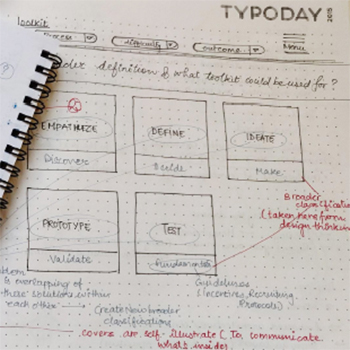 TYPODAY 2015
Toolkit
Process
difficulty
outcome
Menu
definition & what toolkit could be used for ?
EMPATHIZE
DEFINE
IDEATE
Discover
Decide
Make
Broader
classification
(taken here from
design thinking
PROTOTYPE
TEST
Validate
Guidelines
is overlapping of
solutions within
each other
(Incentives, Recruiting
Protocols)
Create New broader
classifications
covers are self-illustrate (To communicate
what's inside)